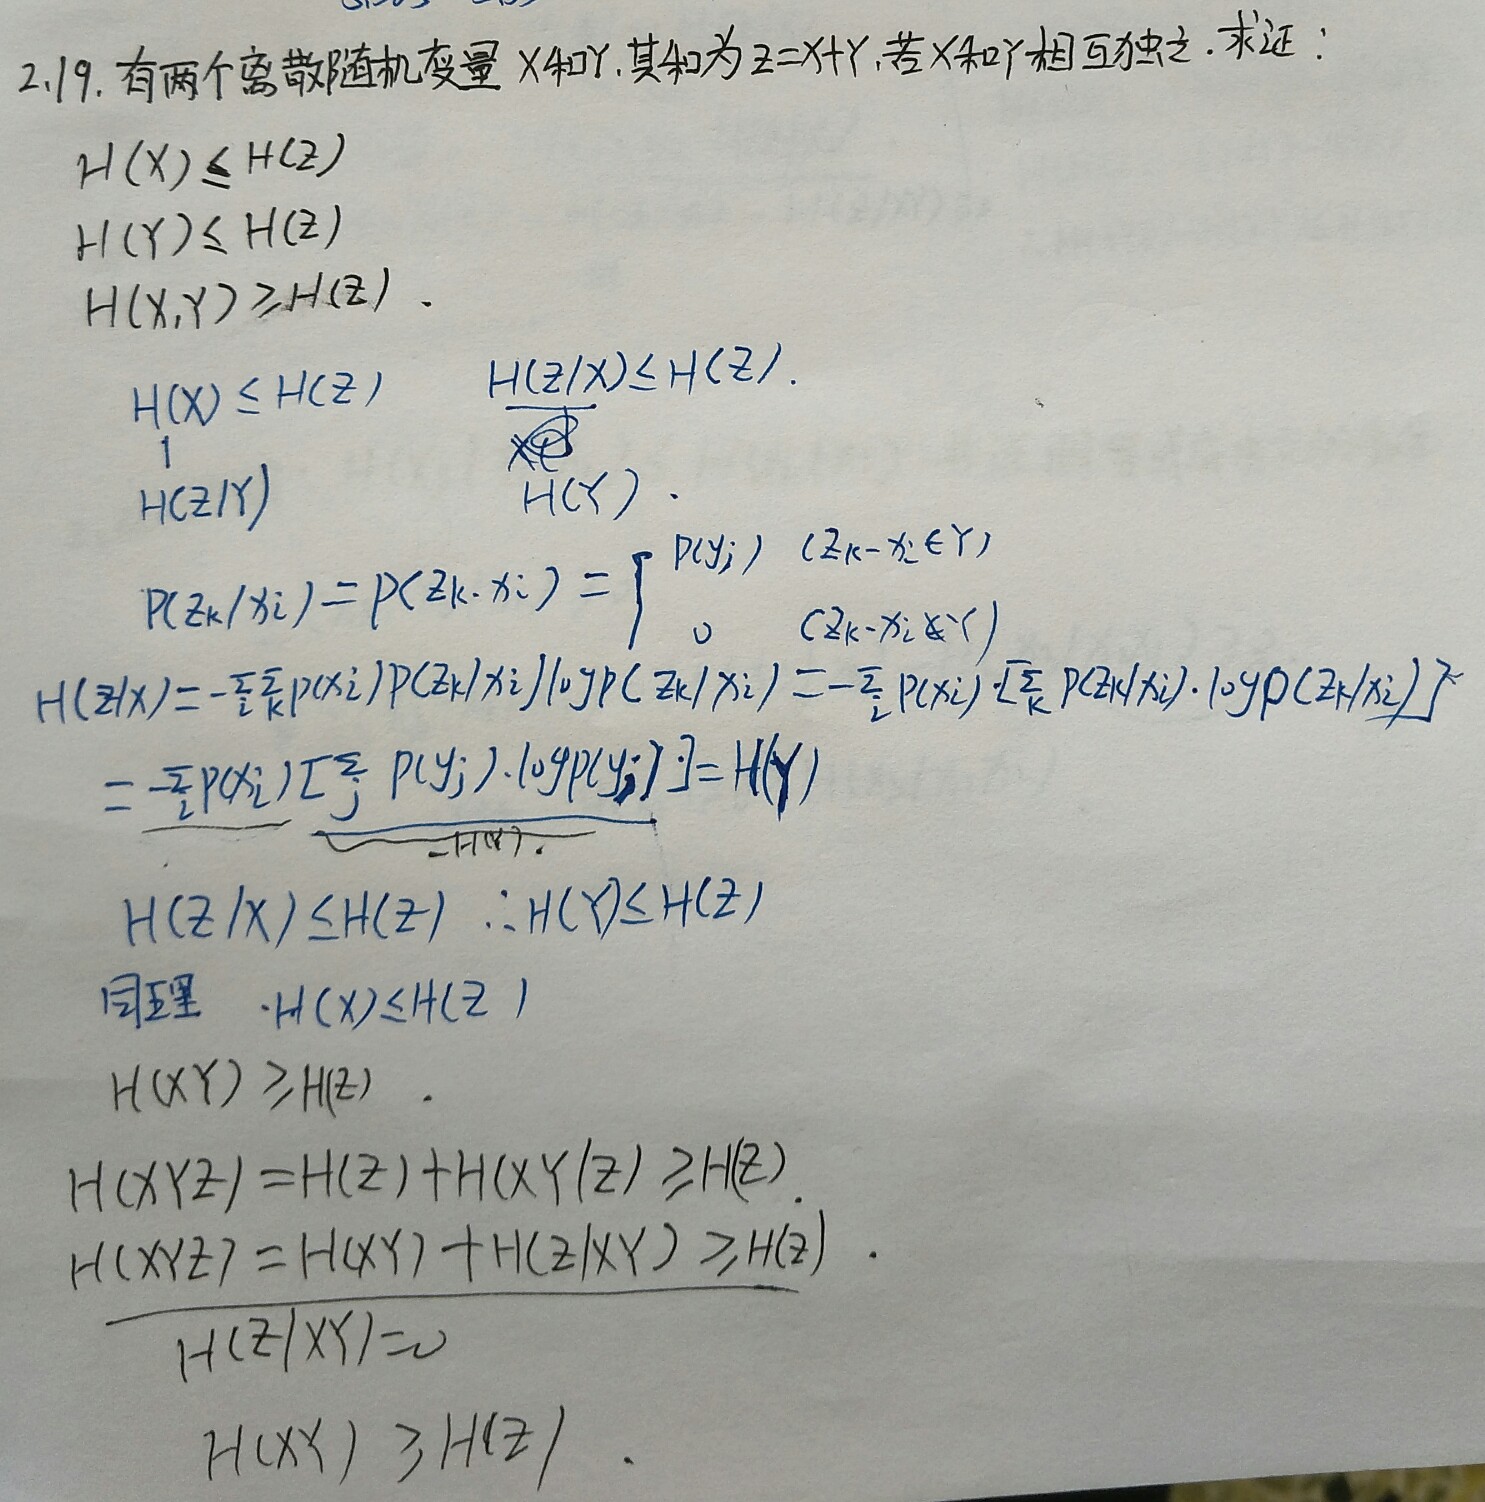 2.19. 有两个离散随机变量 X和Y,其和为Z=X+Y,若X和Y相互独立.求证:
H(X)≤H(Z)
H(Y)≤H(Z)
H(X,Y)≥H(Z).
H(X)≤H(Z) H(Z/X)≤H(Z).
H(Z/Y) H(Y).
P(Zk/xi)=P(Zk-xi)={ P(yj) (Zk-xi∈Y)
0 (Zk-xi∉Y)
H(Z/X)=-∑i∑k p(xi)P(Zk/xi)logP(Zk/xi)=-∑i P(xi)·[∑k P(Zk/xi)·logP(Zk/xi)]
=-∑i P(xi)[∑j P(yj)·logp(yj)]=H(Y)
-H(Y).
H(Z/X)≤H(Z) ∴H(Y)≤H(Z)
同理 H(X)≤H(Z)
H(XY)≥H(Z).
H(XYZ)=H(Z)+H(XY/Z)≥H(Z).
H(XYZ)=H(XY)+H(Z/XY)≥H(Z).
H(Z/XY)=0
H(XY)≥H(Z).